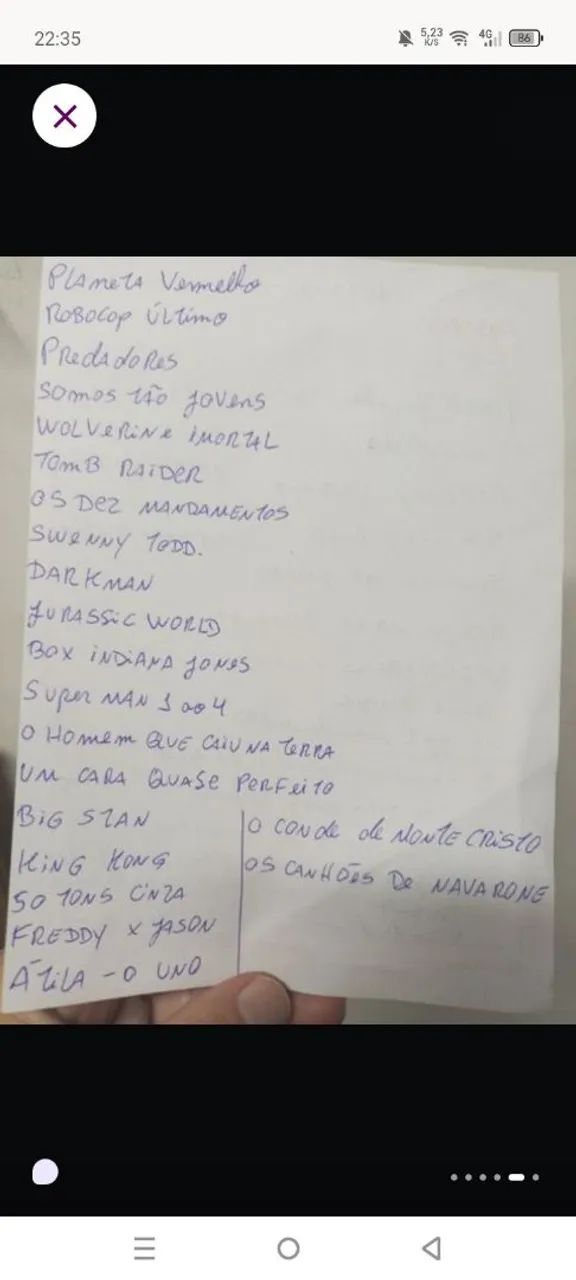 22:35
5,23
K/S
4G
86
Planeta Vermelho
Robocop Último
Predadores
Somos tão jovens
WOLVERINE IMORTAL
TOMB RAIDER
OS DEZ MANDAMENTOS
SWENNY TODD.
DARKMAN
JURASSIC WORLD
BOX INDIANA JONES
Super MAN 1 ao 4
O Homem QUE CAIU NA TERRA
UM CARA QUASE PERFEITO
BIG STAN
KING KONG
50 TONS CINZA
FREDDY x JASON
ÁTILA - O UNO
O CONDE de MONTE CRISTO
OS CANHÕES De NAVARONE